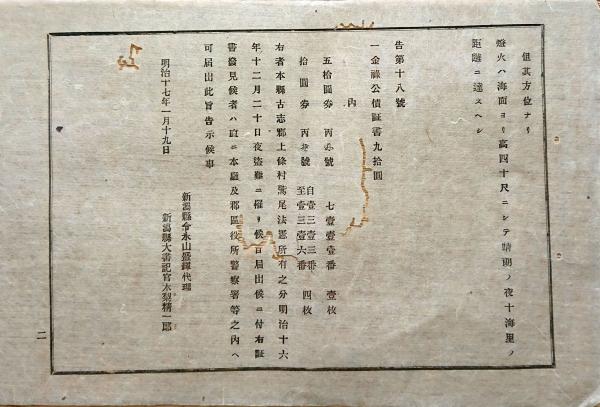 但其方位ナリ
燈火ハ海面ヨリ高四十尺ニシテ晴朗ノ夜十海里ノ
距離ニ達スヘシ
告第十八號
一金祿公債証書九拾圓
內
五拾圓券 丙い號 七壹壹壹番 壹枚
拾圓券 丙い號 自壹三壹三番 至壹三壹六番 四枚
右者本縣古志郡上條村鷲尾法憲所有之分明治十六
年十二月二十日夜盜難ニ罹リ候旨届出候ニ付右証
書發見候者ハ直ニ本廳及郡區役所警察署等之內ヘ
可届出此旨告示候事
明治十七年一月十九日
新潟縣令永山盛輝代理
新潟縣大書記官木梨精一郎
二